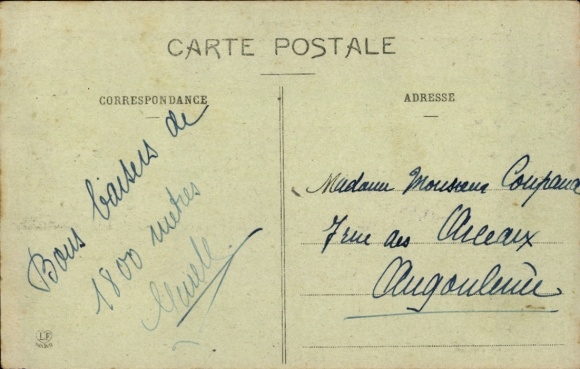 CARTE POSTALE
CORRESPONDANCE
Bons baisers de
1800 mètres
ADRESSE
Madame Monsieur
7 rue des Arceaux
Angoulême